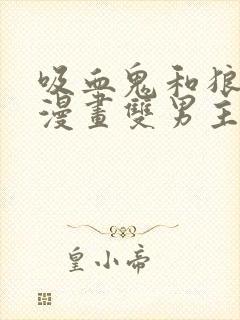 吸血鬼和狼
漫畫雙男主
皇小帝